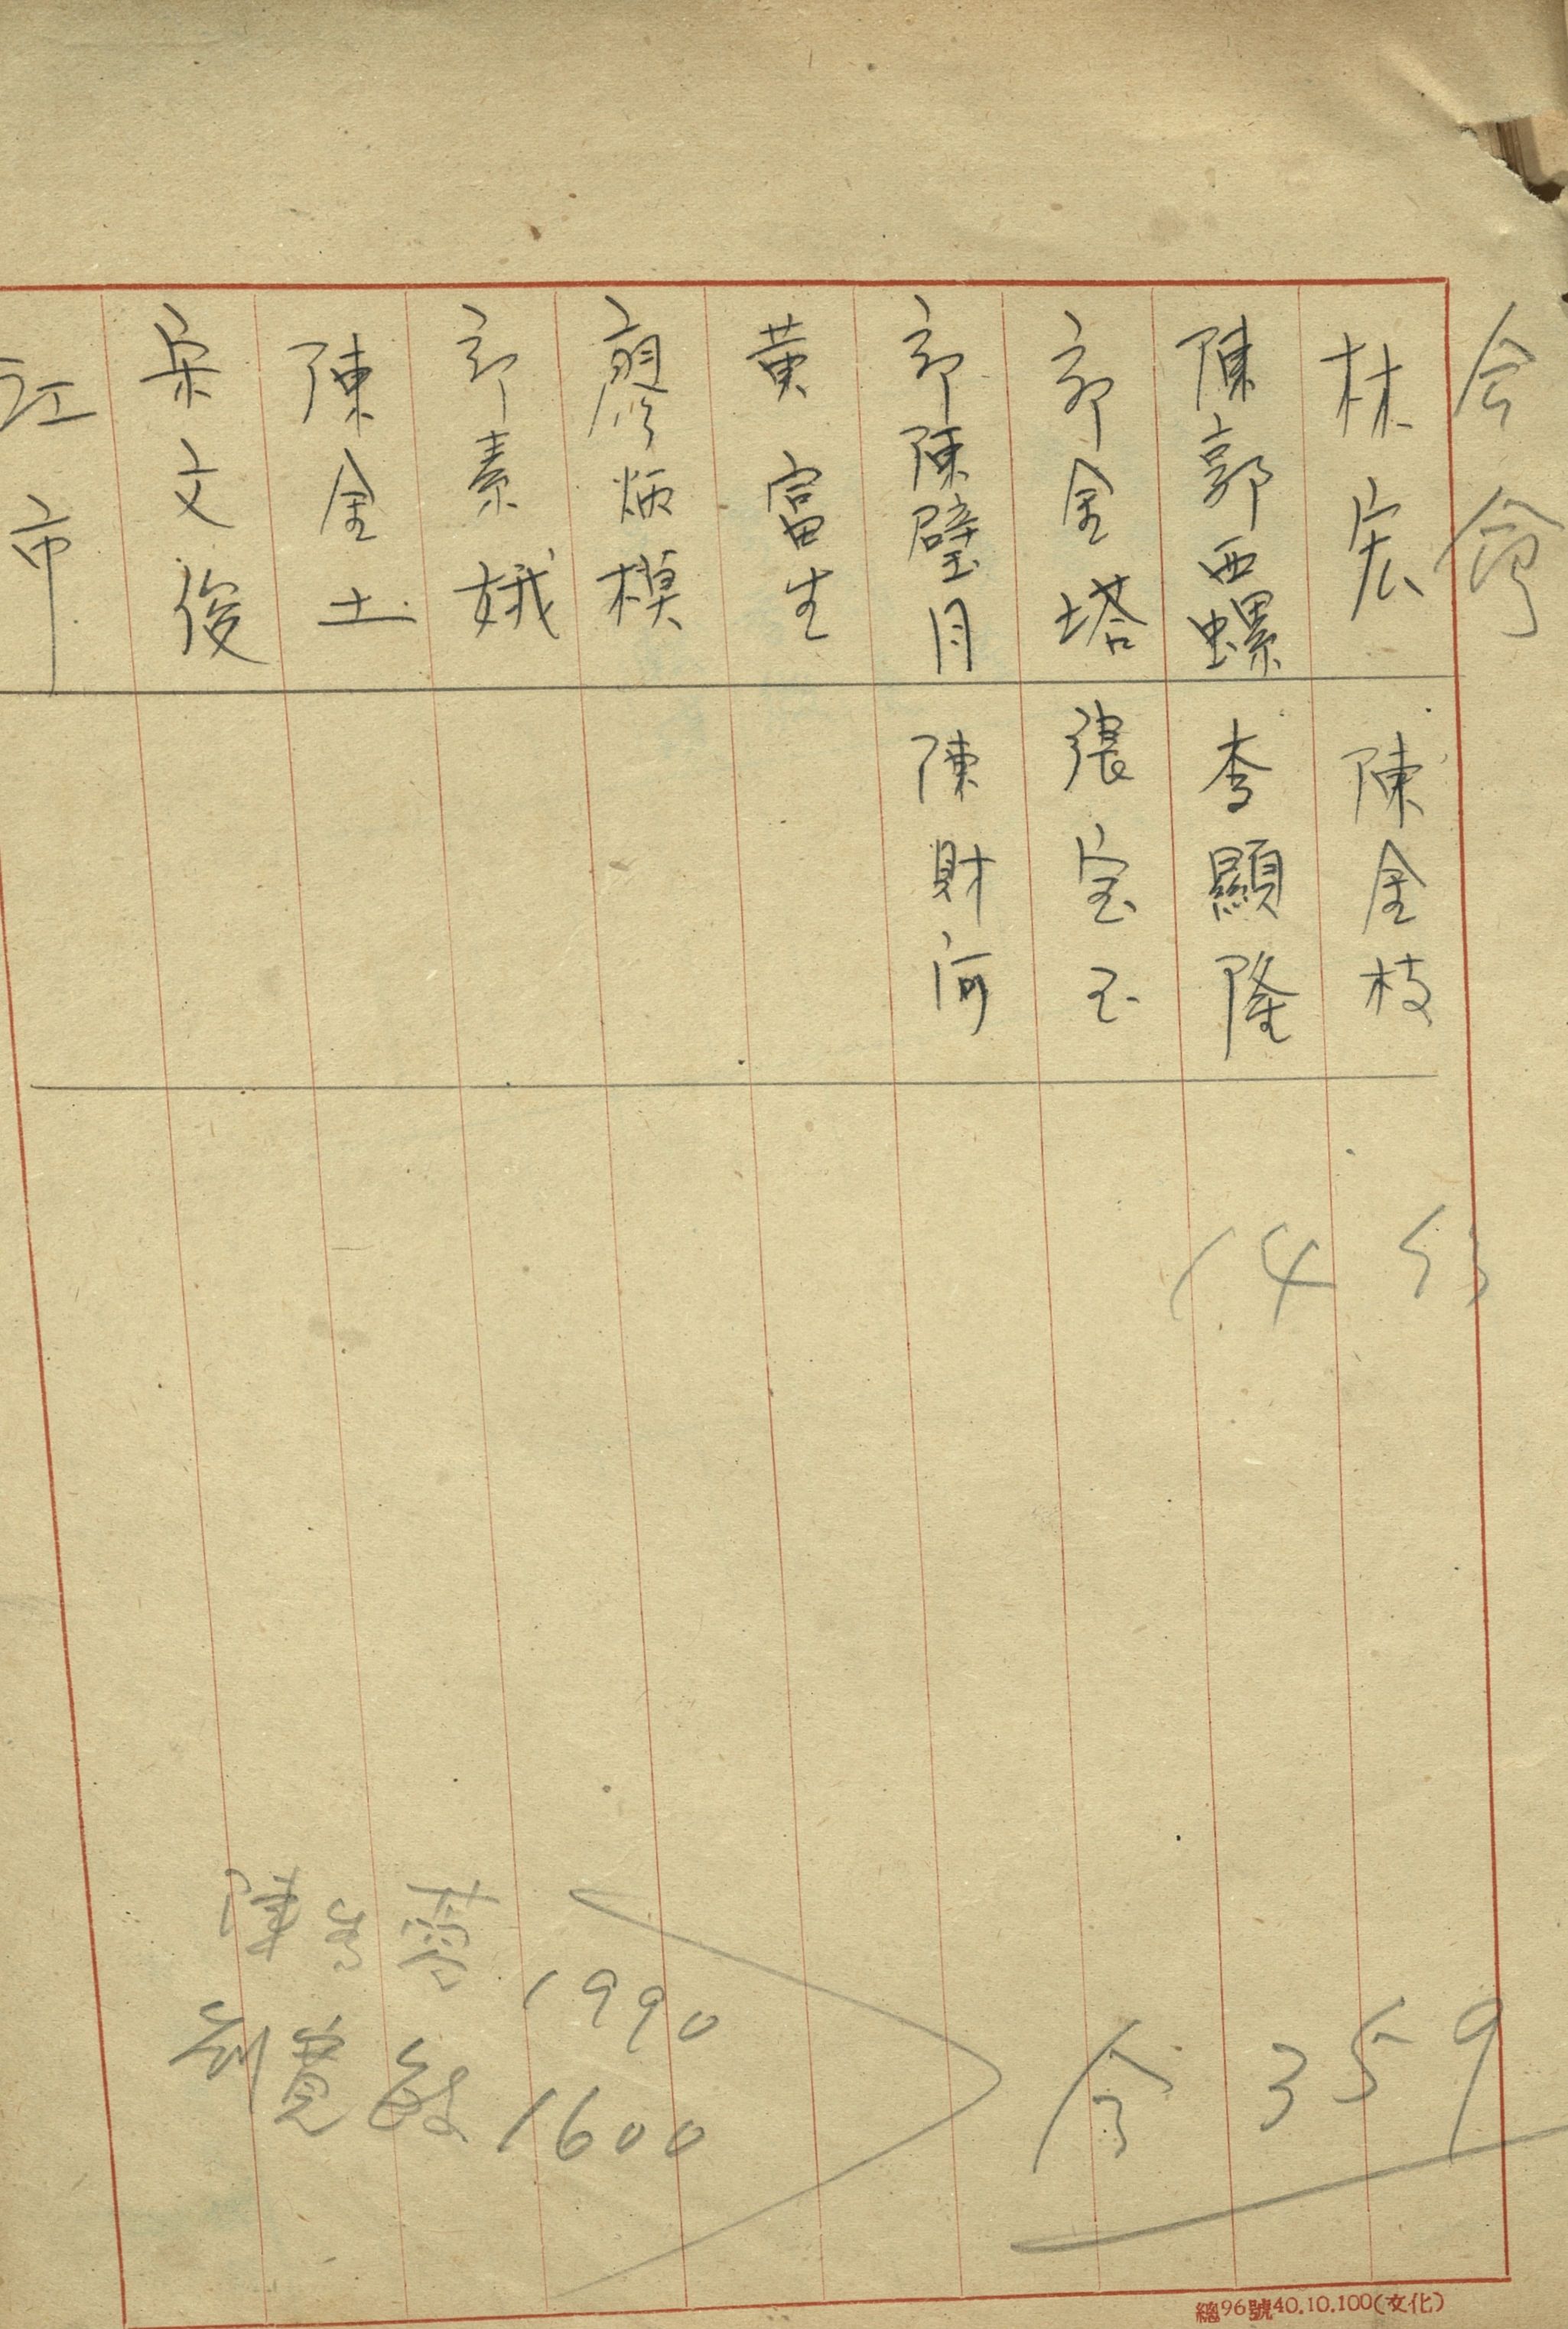 林宏
陳郭西螺
郭金塔
郭陳璧月
黃富生
廖炳模
郭素娥
陳金土
宋文俊
江市
陳金枝
李顯隆
張宝玉
陳財河
14
1990
1600
359
總96號40.10.100(文化)